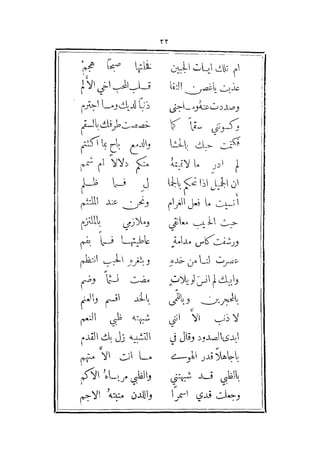 ٢٢
ام تلك ايات الجبين فخلتها صبحًا هجم
عذبت ياغصن النقا قلب المحب اخي الالم
وصددت عنه وما جنى ذنبًا لديك وما اجترم
وكسوتني سقمًا كما خصصت طرفك بالسقم
فكتمت حبك بالحشا والدمع باح بما اكتتم
لم ادرِ ما لاقيتهُ منكم دلالًا ام شمم
ان الجميل اذا تحكم بالجما ل فما ظلم
أنسيت ما فعل الغرام ونحن عند الملتثم
حيث الحبيب معانقي وملازمي بالملتزم
ورشفت كاس مدامةٍ عاطيتها فمًا بفم
عصرت لنا من خدهِ وبثغرهِ الحبب انتظم
وابيك لم انسَ لويلاتٍ مضت لثمًا وضم
بالمحجرين وباللمى بالخد اقسم والعنم
لا ذنب الاَّ انني شبهته ظبي النعم
ابدى الصدود وقال في التشبيه زل بك القدم
ياجاهلًا قدر الهوى ما انت الاَّ متهم
بالظبي قد شبهتني والظبي مرباهُ الاكم
وجعلت قدي اسمرًا واللدن منبتهُ الاجم